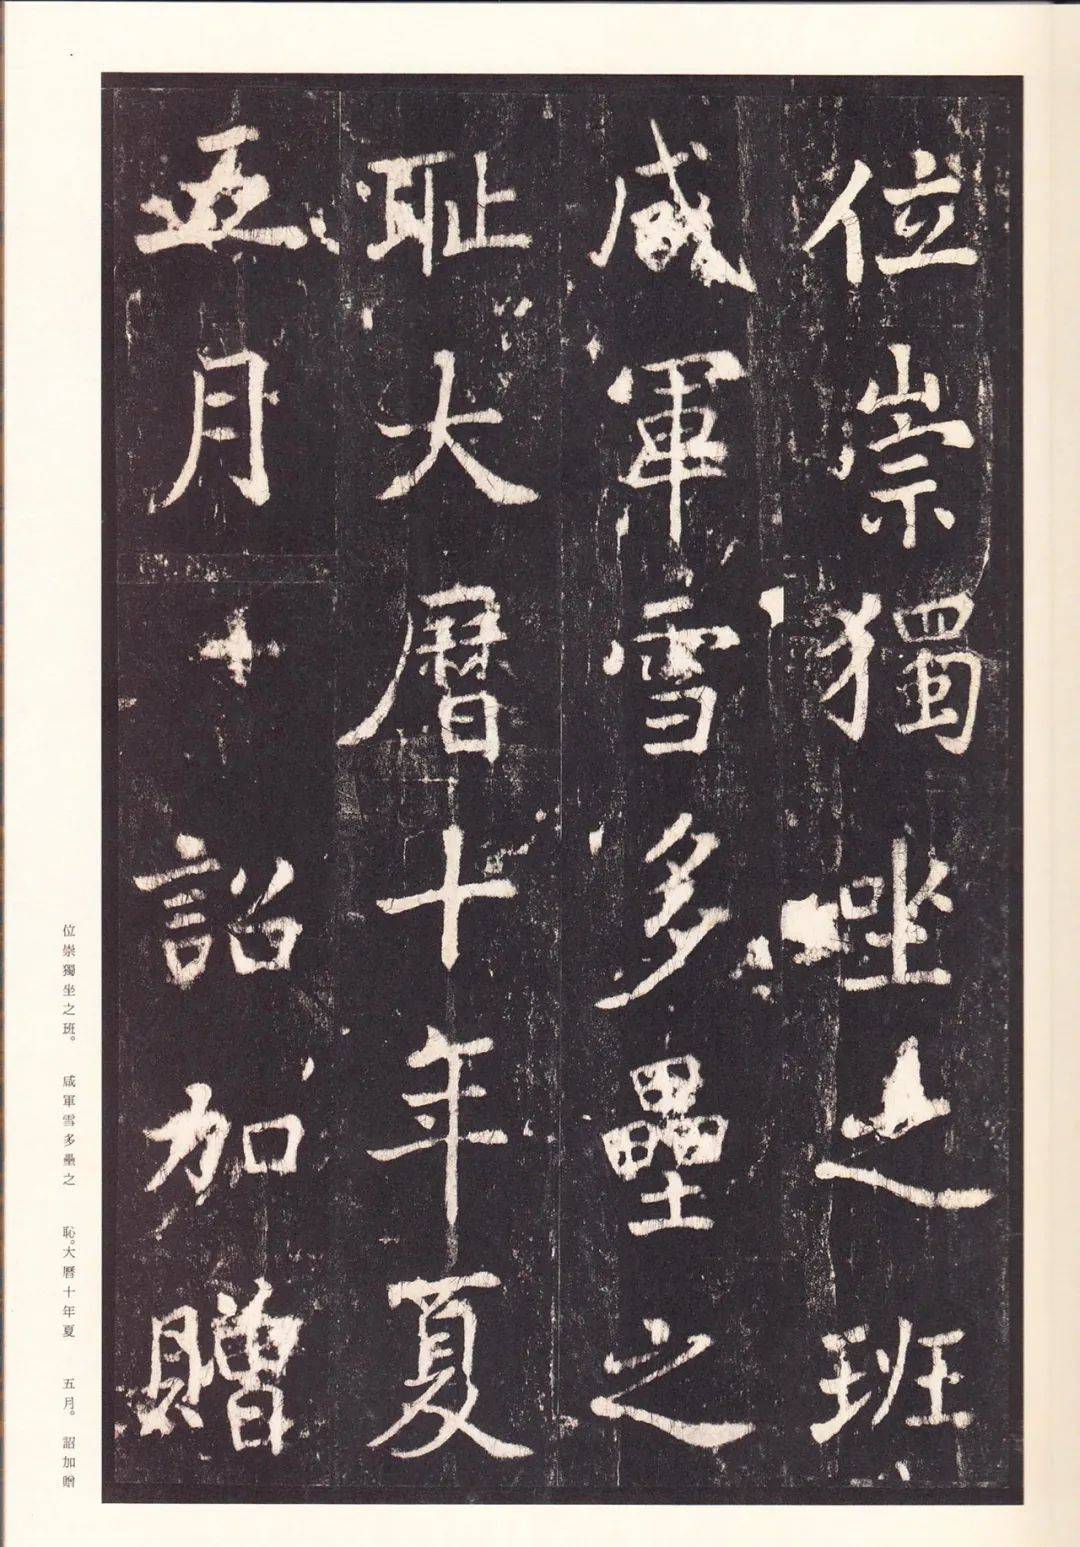 位崇獨坐之班
咸軍雪多壘之
恥大曆十年夏
五月 詔加贈
位崇獨坐之班。 咸軍雪多壘之 恥。大曆十年夏 五月。 詔加贈